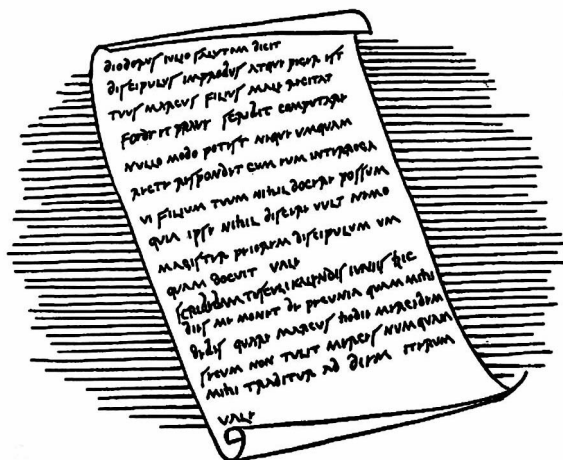 DIODORUS IULIO SALUTAM DICIT
DISCIPULUS IMPROBUS ATQUE PIGER EST
TUUS MARCUS FILIUS MALE RECITAT
FOEDE ET PRAVE SCRIBIT COMPUTARE
NULLO MODO POTEST NEQUE UMQUAM
RECTE RESPONDET CUM EUM INTERROGA
VI FILIUM TUUM NIHIL DOCERE POSSUM
QUIA IPSE NIHIL DISCERE VULT NEMO
MAGISTER PEIOREM DISCIPULUM UM
QUAM DOCUIT VALE
SCRIBEBAM TUSCULI KALENDIS IUNIIS HIC
DIES ME MONET DE PECUNIA QUAM MIHI
DEBES QUARE MARCUS HODIE MERCEDEM
SECUM NON TULIT MERCES NUMQUAM
MIHI TRADITUR AD DIEM ITERUM
VALE